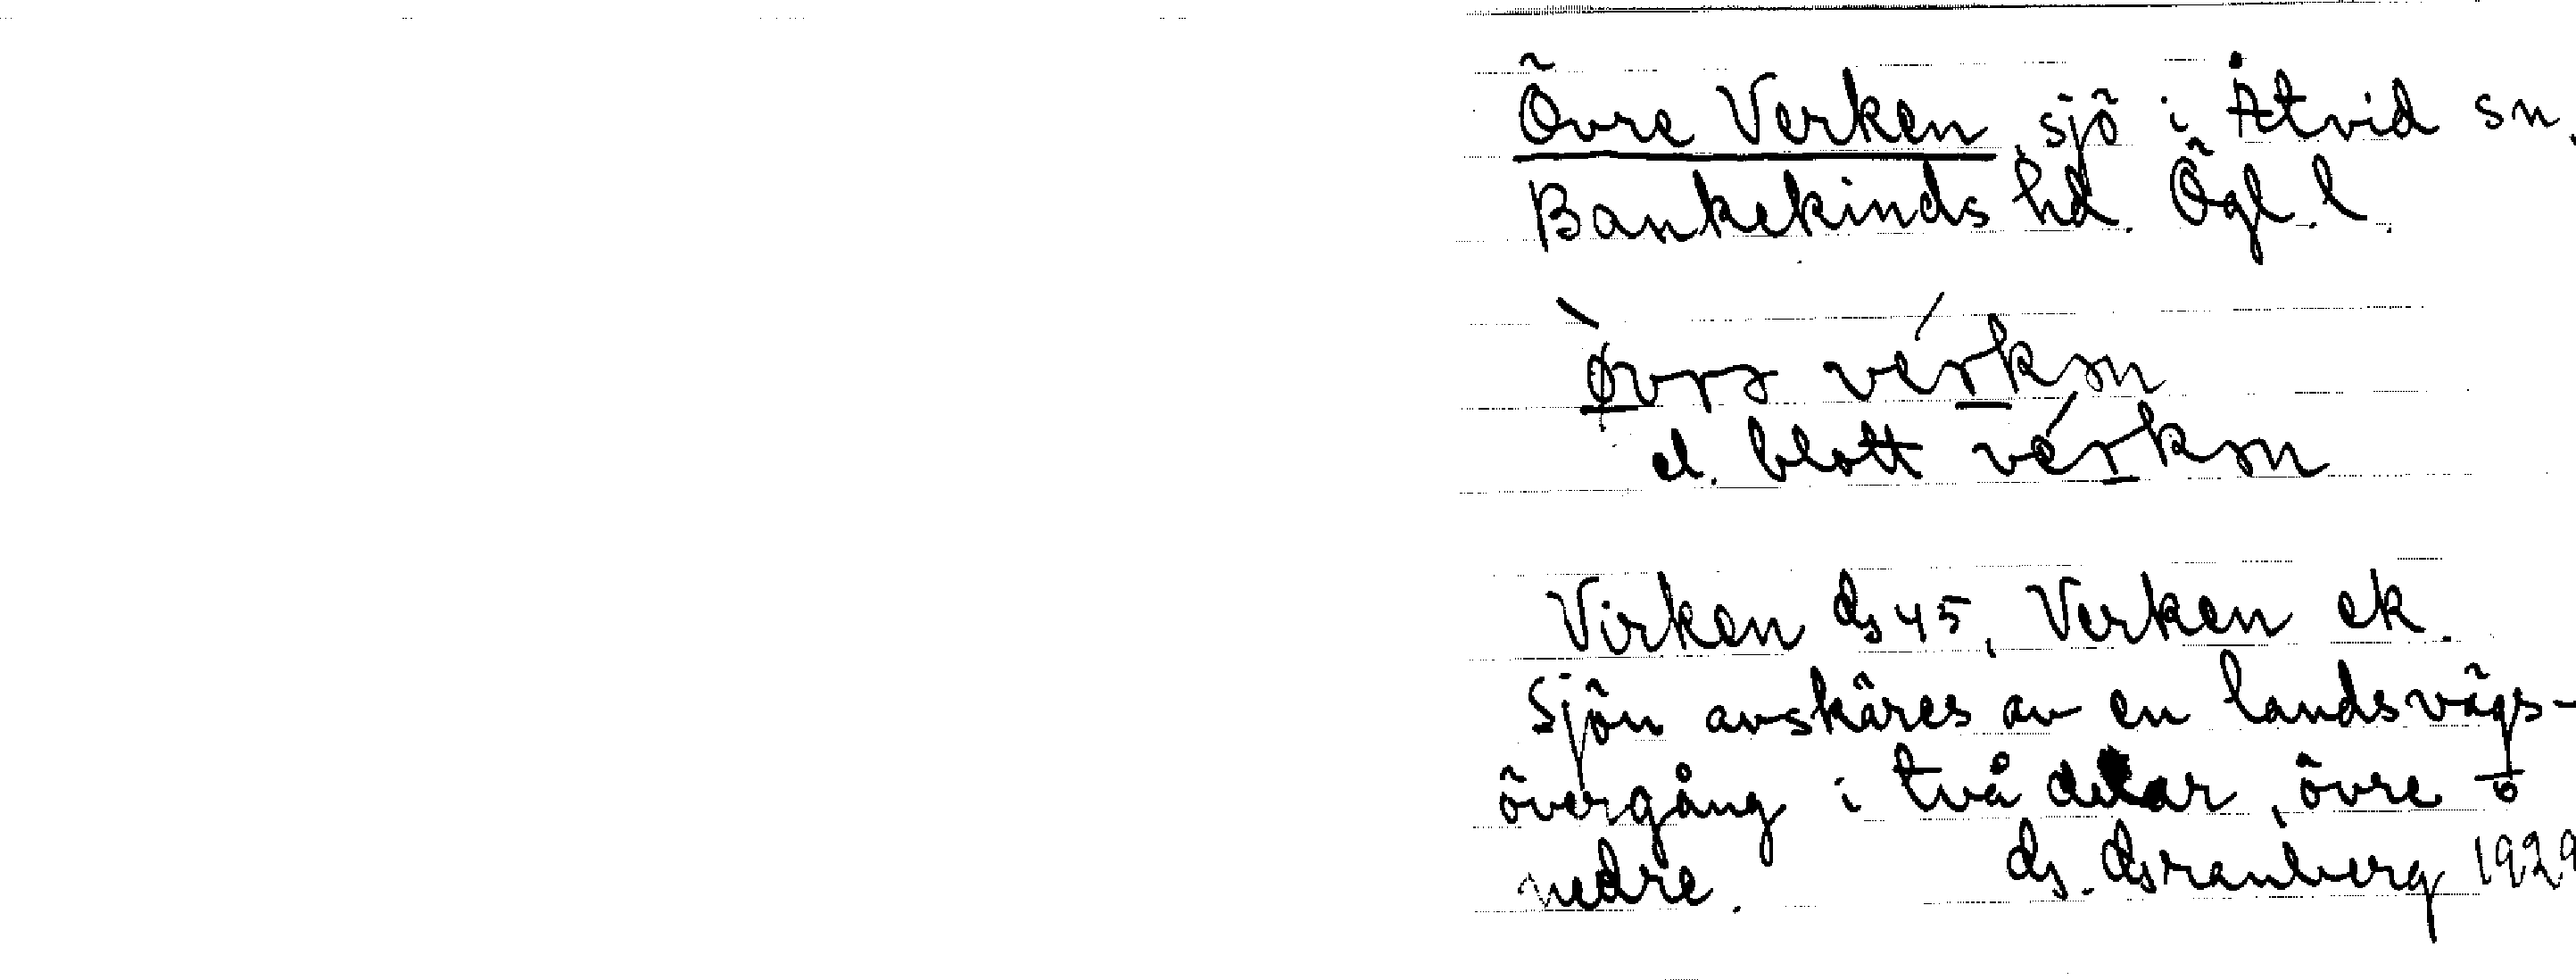 Övre Verken, sjö i Åtvid sn,
Bankekinds hd. Ögl. l.
ø̀vrə vérkən
el. blott vérkən
Virken Gs 45, Verken ek.
Sjön avskäres av en landsvägs-
övergång i två delar, övre o
nedre. G. Granberg 1929